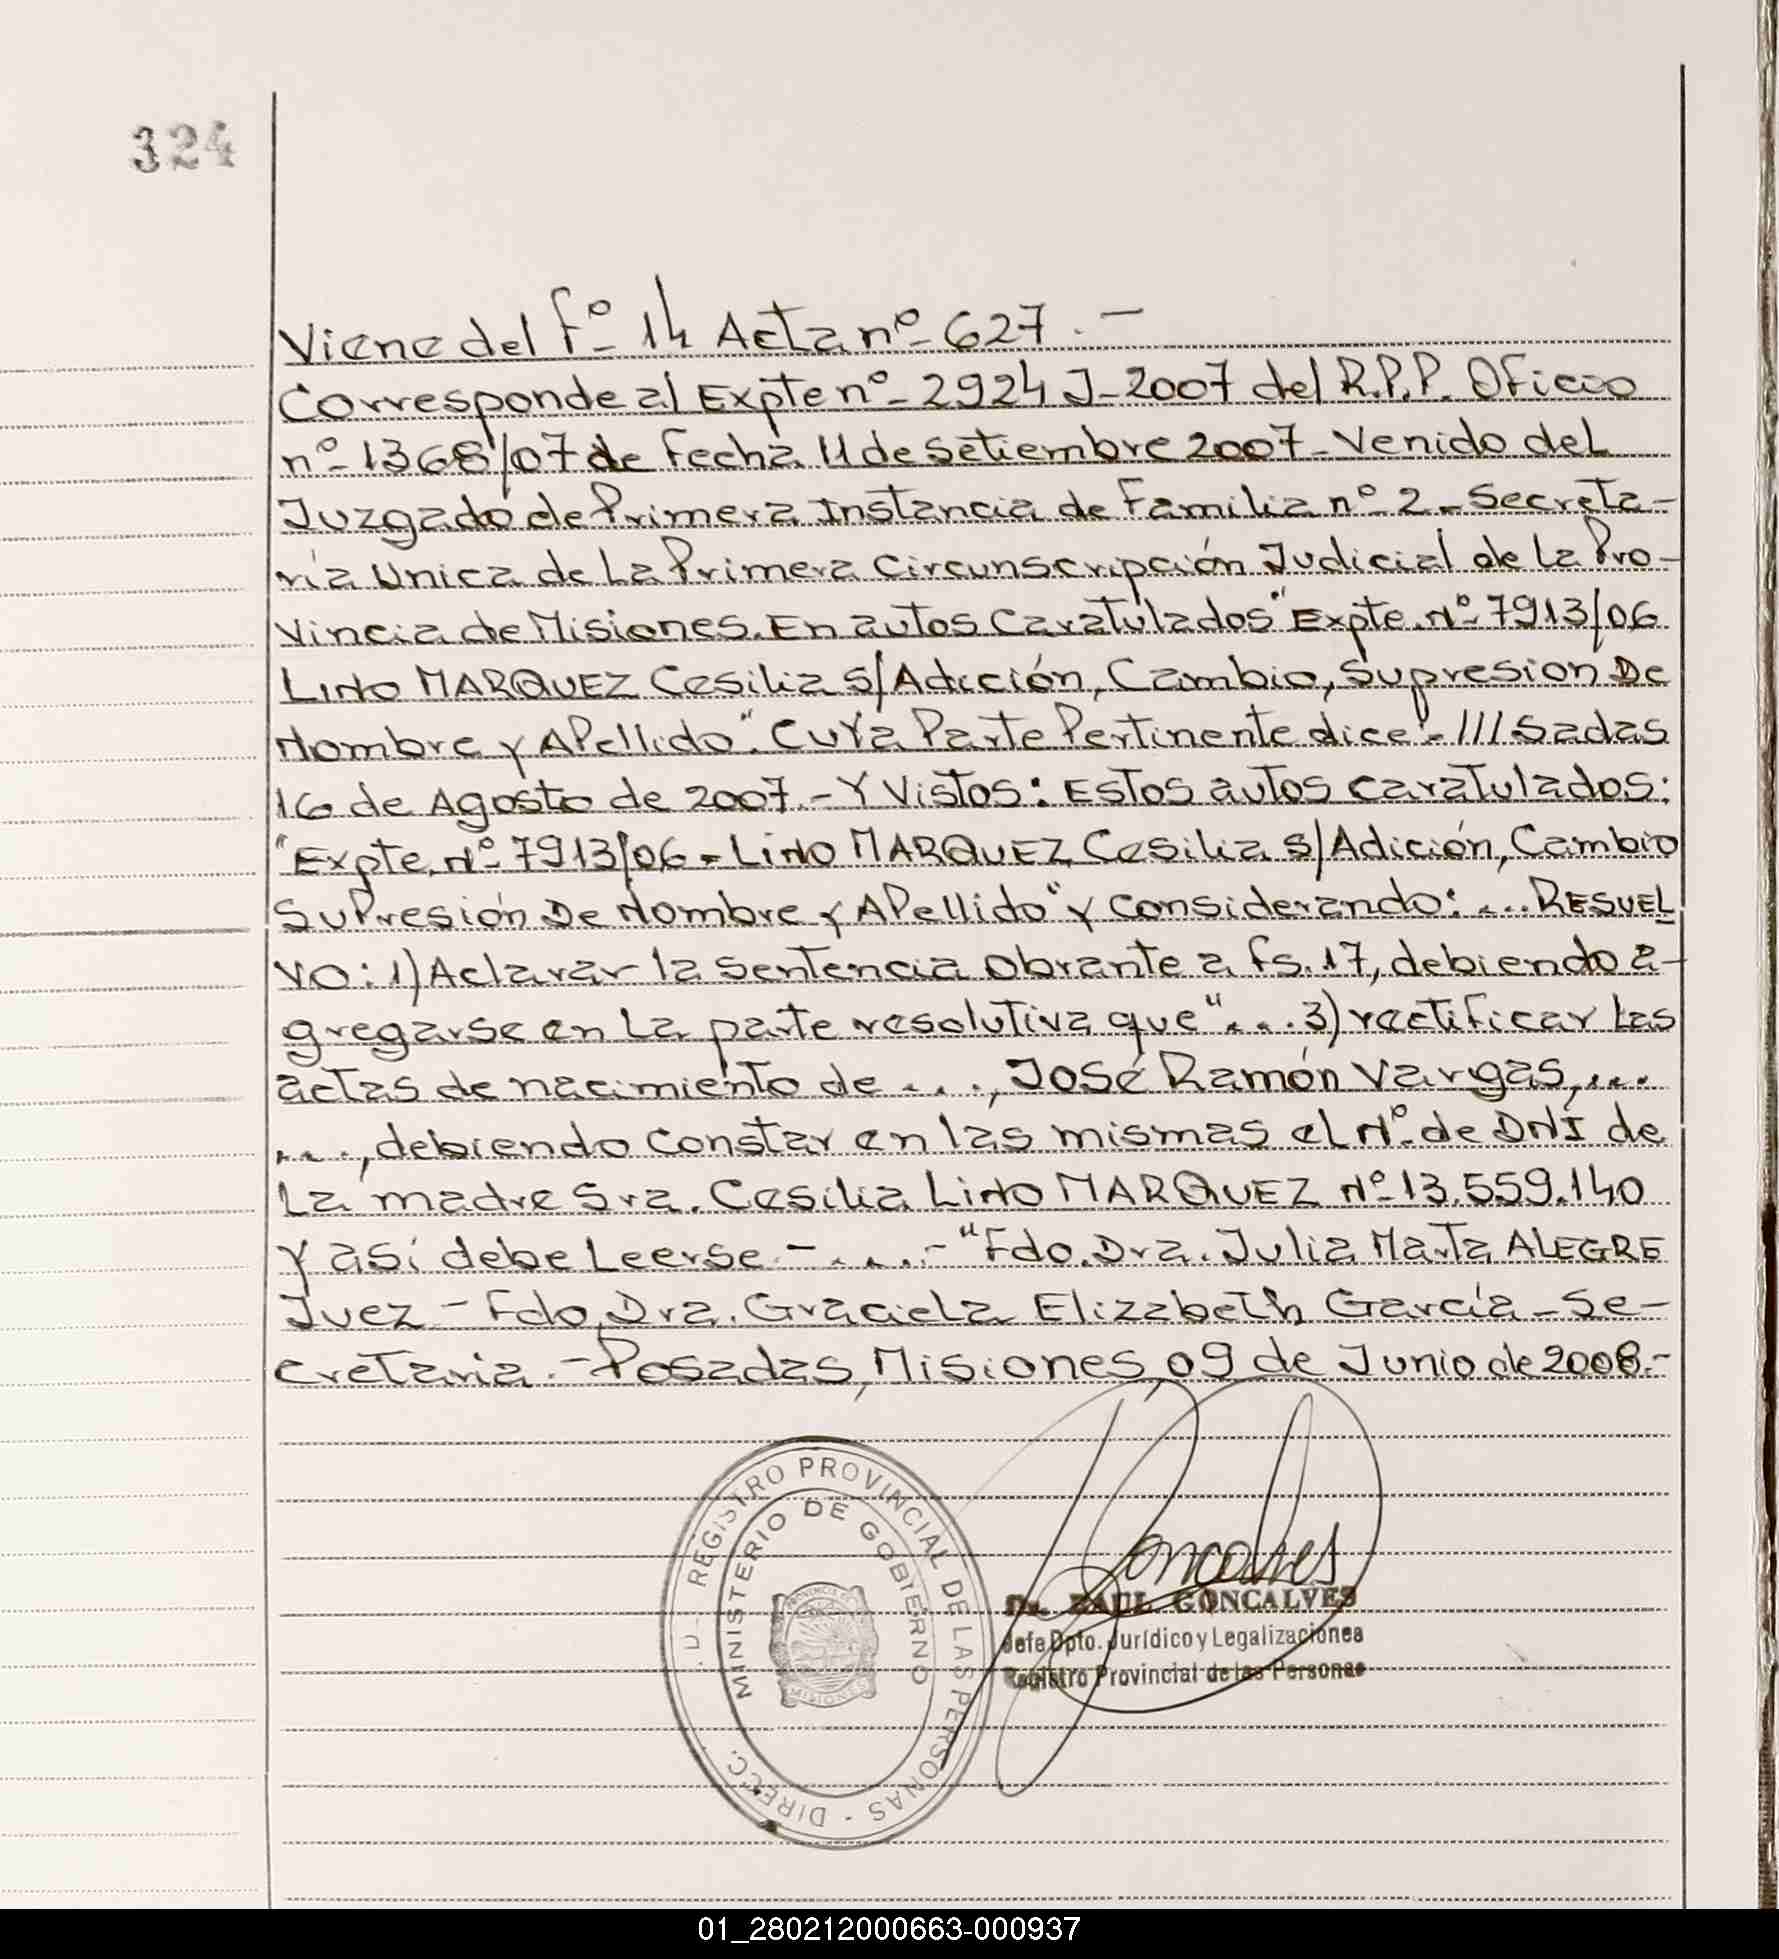 324
Viene del Fº- 14 Acta nº- 627.-
Corresponde al Expte nº- 2924 J-2007 del R.P.P. Oficio
nº- 1368/07 de Fecha 11 de setiembre 2007- Venido del
Juzgado de Primera Instancia de Familia nº- 2 - Secreta-
ría Unica de La Primera Circunscripción Judicial de la Pro-
vincia de Misiones. En autos Caratulados "Expte. Nº- 7913/06
LINO MARQUEZ Cesilia s/Adición, Cambio, Supresion De
Nombre y APellido". CuYa Parte Pertinente dice:- ///sadas
16 de Agosto de 2007.- Y Vistos: Estos autos caratulados:
"Expte. Nº- 7913/06 - LINO MARQUEZ Cesilia s/Adición, Cambio
SuPresión De Nombre y APellido" y considerando: ... RESUEL
VO: 1) Aclarar la sentencia obrante a fs. 17, debiendo a-
gregarse en La parte resolutiva que "... 3) rectificar Las
actas de nacimiento de ..., José Ramón Vargas, ...
..., debiendo constar en las mismas el Nº. de DNI de
La madre Sra. Cesilia LINO MARQUEZ Nº- 13.559.140
y así debe Leerse.- ... -" Fdo. Dra. Julia Marta ALEGRE
Juez - Fdo. Dra. Graciela Elizabeth García - Se-
cretaria.- Posadas, Misiones, 09 de Junio de 2008.-
DIRECC. . . . U. - REGISTRO PROVINCIAL DE LAS PERSONAS -
MINISTERIO DE GOBIERNO
PROVINCIA
MISIONES
Goncalves
Dr. RAUL GONCALVES
Jefe Dpto. Jurídico y Legalizaciones
Registro Provincial de las Personas
01_280212000663-000937